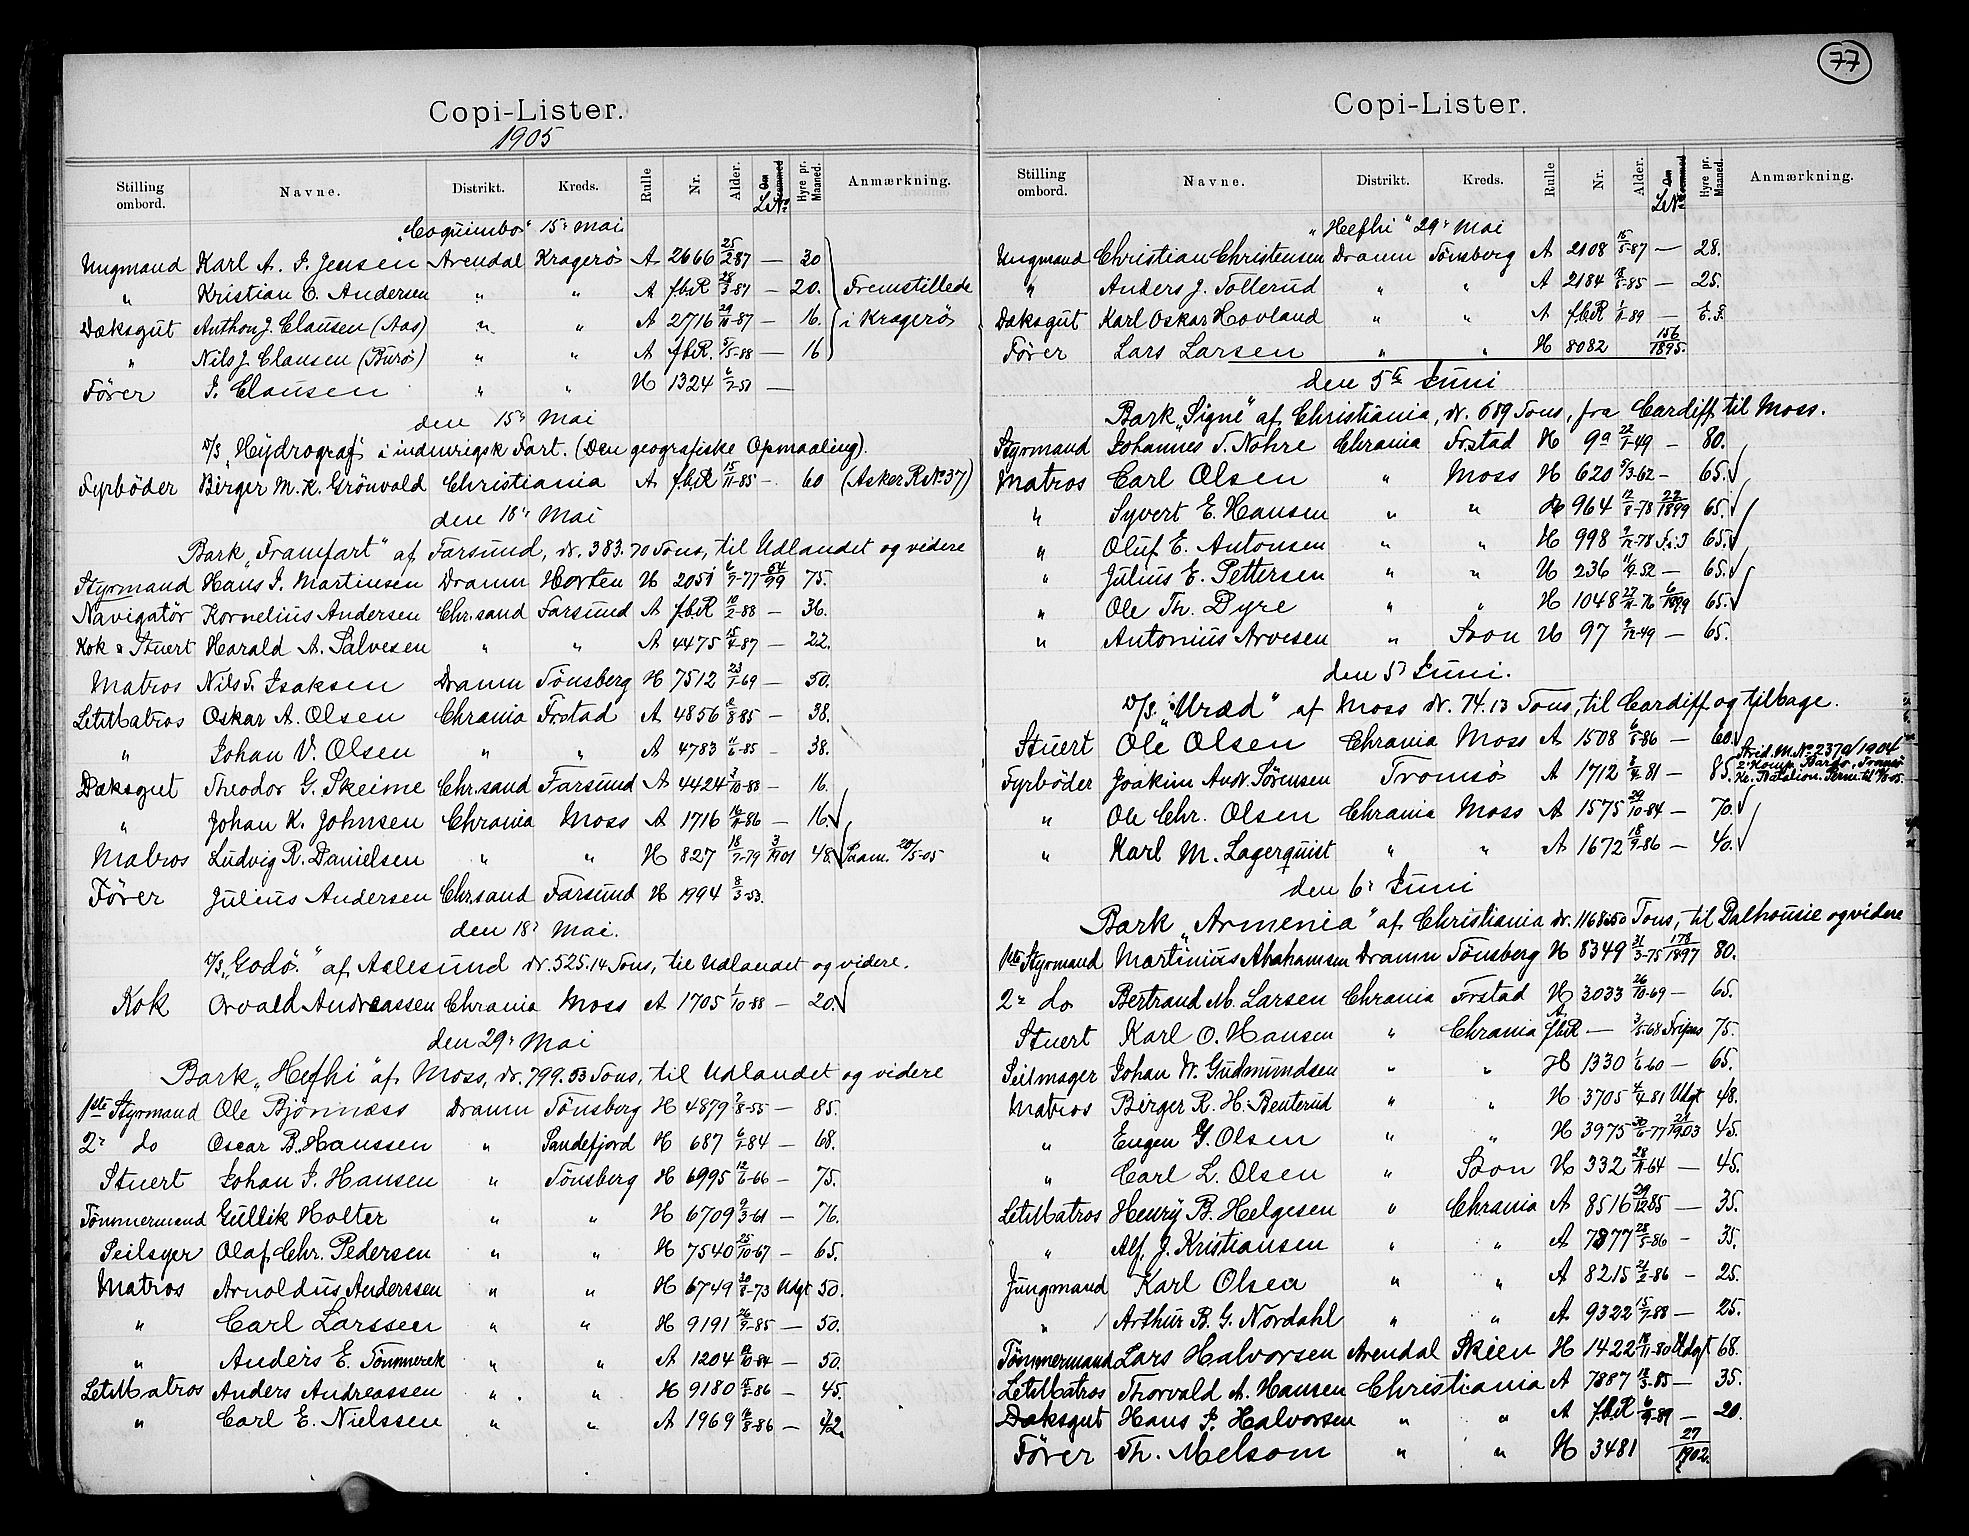 77
Copi-Lister.
1905
Stilling ombord. Navne. Distrikt. Kreds. Rulle Nr. Alder. Le No Hyre pr. Maaned. Anmærkning.
"Coquimbo" 15' Mai
Ungmand Karl A. J. Jensen Arendal Kragerø A 2666 25/2-87 — 30
" Kristian C. Andersen " " A f.b.R 28/3-87 — 20. Fremstillede
Dæksgut Anthon J. Clausen (Aas) " " A 2716 29/10-87 — 16. i Kragerø
" Nils J. Clausen (Burø) " " A f.b.R. 5/5-88 — 16
Fører J. Clausen " " H 1324 6/7-51 —
den 15' Mai
D/S "Hydrograf" i indenrigsk Fart. (Den geografiske Opmaaling).
Fyrbøder Birger M. K. Grönvold Christiania A f.b.R 15/11-85 — 60 (Asker R No 37)
den 18' Mai
Bark "Framfart" af Farsund, dr. 383.70 Tons, til Udlandet og videre
Styrmand Hans J. Martinsen Dramn Horten H 2051 6/7-77 54/99 75.
Navigatør Kornelius Andersen Chr.sand Farsund A f.b.R 10/2-88 — 36.
Kok & Stuert Harald A. Salvesen " " A 4475 15/4-87 — 22.
Matros Nils T. Isaksen Dramn Tönsberg H 7512 23/1-69 — 50.
LetMatros Oskar A. Olsen Chrania Frstad A 4856 12/8-85 — 38.
" Johan V. Olsen " " A 4783 11/6-85 — 38.
Dæksgut Theodor G. Skeime Chr.sand Farsund A 4424 3/10-83 — 16.
" Johan K. Johnsen Chrania Moss A 1716 16/11-86 — 16.
Matros Ludvig R. Danielsen " " H 827 18/7-79 3/1901 48. Saam. 20/5-05
Fører Julius Andersen Chr.sand Farsund H 1994 8/3-53.
den 18' Mai.
D/S "Godø." af Aalesund dr. 525.14 Tons, til Udlandet og videre.
Kok Orvald Andreassen Chrania Moss A 1705 1/10-88 — 20.
den 29' Mai
Bark "Hefhi" af Moss, dr. 799.53 Tons, til Udlandet og videre
1ste Styrmand Ole Bjørnnæss Dramn Tönsberg H 4879 7/8-55 — 85.
2' do Oscar B. Hanssen " Sandefjord H 687 6/1-84 — 68.
Stuert Johan J. Hansen " Tönsberg H 6995 12/6-66 — 75.
Tömmermand Gullik Holter " " H 6709 9/3-61 — 76.
Seilsyer Olaf Chr. Pedersen " " H 7540 25/10-67 — 65.
Matros Arnoldus Anderssen " " H 6749 20/8-73 Udgt 50.
" Carl Larssen " " H 9191 26/9-85 — 50.
" Anders E. Tömmerek " " A 1204 19/10-84 — 50.
LetMatros Anders Andreassen " " H 9180 15/5-86 — 45.
" Carl E. Nielssen " " A 1969 16/8-86 — 42.
Copi-Lister.
Stilling ombord. Navne. Distrikt. Kreds. Rulle Nr. Alder. Le No Hyre pr. Maaned. Anmærkning.
"Hefhi" 29' Mai
Ungmand Christian Christensen Dramn Tönsberg A 2108 15/5-87 — 28.
" Anders J. Tollerud " " A 2184 18/5-85 — 25.
Dæksgut Karl Oskar Hovland " " A f.b.R 1/11-89 — E.F.
Fører Lars Larsen " " H 8082 156/1895.
den 5te Juni
Bark "Signe" af Christiania, dr. 689 Tons, fra Cardiff til Moss.
Styrmand Johannes T. Nohre Chrania Frstad H 9a 22/1-49 — 80.
Matros Carl Olsen " Moss H 620 5/3-62 — 65.
" Syvert E. Hansen " " H 964 12/8-78 22/1899 65.
" Oluf E. Antonsen " " H 998 9/12-78 65.
" Julius E. Pettersen " " H 236 11/9-52 — 65.
" Ole Th. Dyre " " H 1048 27/11-76 6/1899 65.
" Antonius Arvesen " Soon H 97 9/12-49 — 65.
den 5' Juni.
D/S. "Uræd" af Moss dr. 74.13 Tons, til Cardiff og tilbage.
Stuert Ole Olsen Chrania Moss A 1508 6/5-86 — 60.
Fyrbøder Joakim Andr. Sørensen Tromsø A 1712 8/4-81 — 85. Strid. M. No 237a/1904 2' Komp. Tromsø
" Ole Chr. Olsen Chrania Moss A 1575 29/10-84 — 70.
" Karl M. Lagerquist " " A 1672 18/9-86 — 40.
den 6' Juni
Bark "Armenia" af Christiania dr. 1168.50 Tons, til Dalhousie og videre
1ste Styrmand Martinius Abahamsen Dramn Tönsberg H 8349 31/3-75 178/1897 80.
2' do. Bertrand M. Larsen Chrania Frstad H 3033 26/10-69 — 65.
Stuert Karl O. Hansen " Chrania A f.b.R — 3/5-68 Fripas 75.
Seilmager Johan W. Gudmundsen " " H 1330 1/6-60 — 65.
Matros Birger R. H. Benterud " " H 3705 4/4-81 Udgt 48.
" Eugen G. Olsen " " H 3975 30/6-77 21/1903 45.
" Carl L. Olsen " Soon H 332 28/11-64 — 45.
LetMatros Henry B. Helgesen " Chrania A 8516 29/12-85 — 35.
" Alf. J. Kristiansen " " A 7877 28/5-86 — 35.
Jungmand Karl Olsen " " A 8215 21/2-86 — 25.
" Arthur B. G. Nordahl " " A 9322 15/7-88 — 25.
Tömmermand Lars Halvorsen Arendal Skien H 1422 18/11-80 Udgt 68.
LetMatros Thorvald A. Hansen Christiania A 7887 12/3-85 — 35.
Dæksgut Hans J. Halvorsen " " A f.b.R 6/9-89 — 20.
Fører Th. Melsom " " H 3481 27/1902.